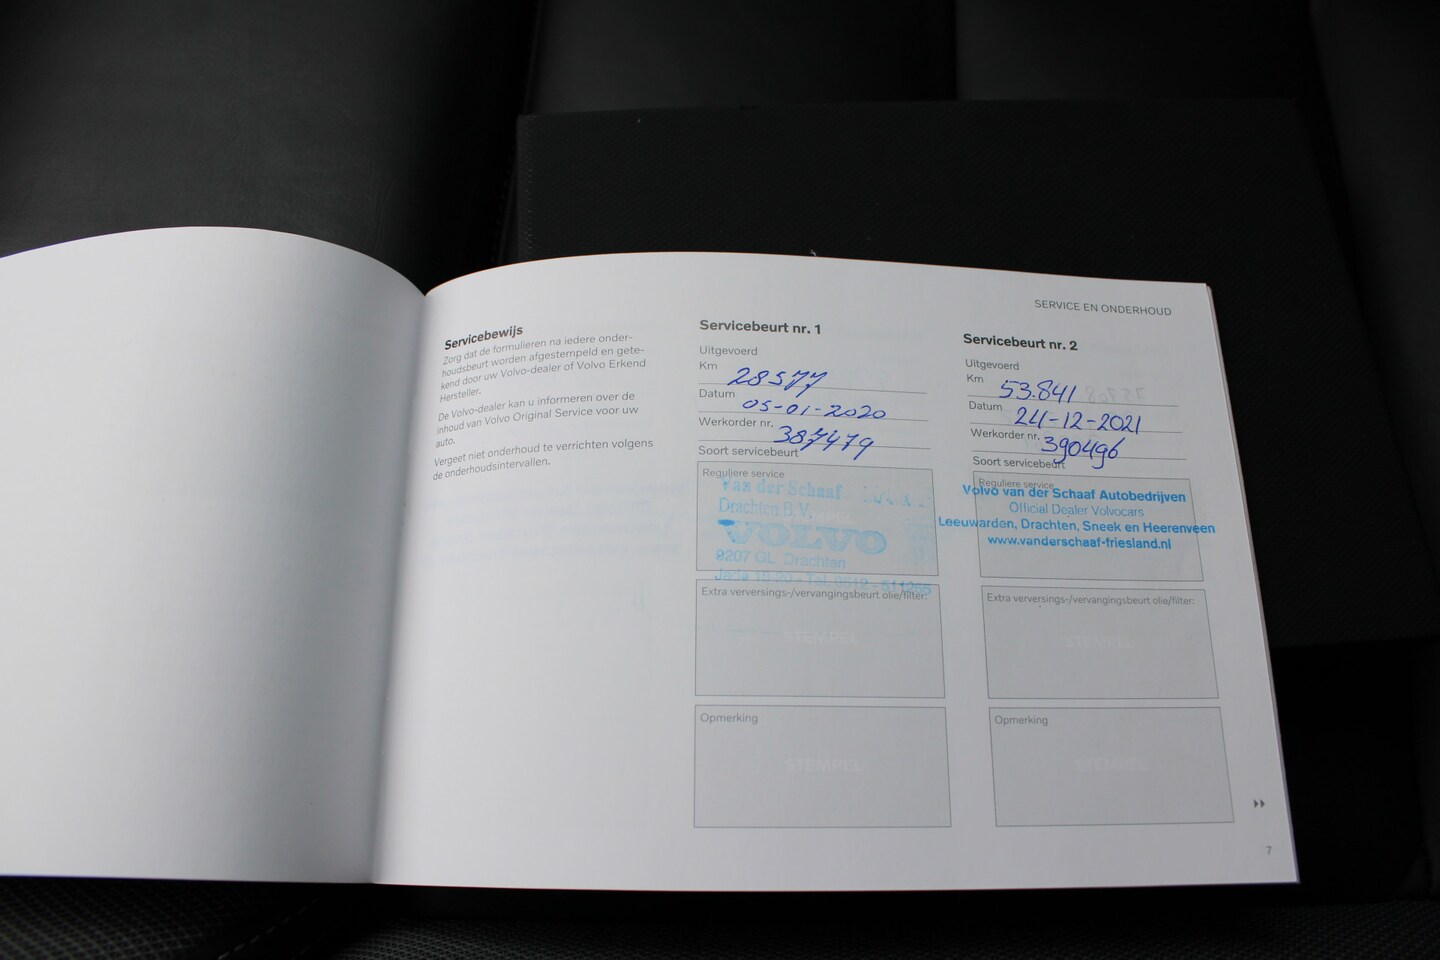 SERVICE EN ONDERHOUD
Servicebewijs
Zorg dat de formulieren na iedere onder-
houdsbeurt worden afgestempeld en gete-
kend door uw Volvo-dealer of Volvo Erkend
Hersteller.
De Volvo-dealer kan u informeren over de
inhoud van Volvo Original Service voor uw
auto.
Vergeet niet onderhoud te verrichten volgens
de onderhoudsintervallen.
Servicebeurt nr. 1
Uitgevoerd
Km 28577
Datum 05-01-2020
Werkorder nr. 387479
Soort servicebeurt
Reguliere service
Van der Schaaf
Drachten B.V.
VOLVO
9207 GL Drachten
Jade 18-20 - Tel. 0512 - 511255
Extra verversings-/vervangingsbeurt olie/filter:
STEMPEL
Opmerking
STEMPEL
Servicebeurt nr. 2
Uitgevoerd
Km 53.841
Datum 24-12-2021
Werkorder nr. 390496
Soort servicebeurt
Reguliere service
Volvo van der Schaaf Autobedrijven
Official Dealer Volvocars
Leeuwarden, Drachten, Sneek en Heerenveen
www.vanderschaaf-friesland.nl
Extra verversings-/vervangingsbeurt olie/filter:
STEMPEL
Opmerking
STEMPEL
7